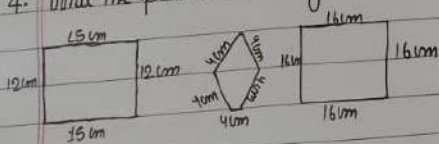 4.
15 cm
12 cm
12 cm
15 cm
4cm
4cm
4cm
4cm
4cm
16 cm
16cm
16 cm
16 cm